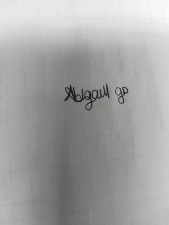 Abigail go